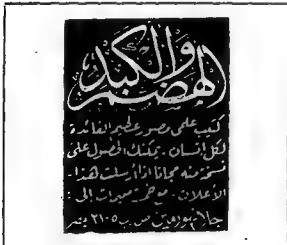 الهضم والكبد
كتيب علمى مصور عظيم الفائدة
لكل انسان . يمكنك الحصول على
نسخة منه مجانا اذا أرسلت هذا
الأعلان . مع خمسة مليمات إلى :
جلاتيوروبين س. ب ٢١٠٥ مصر